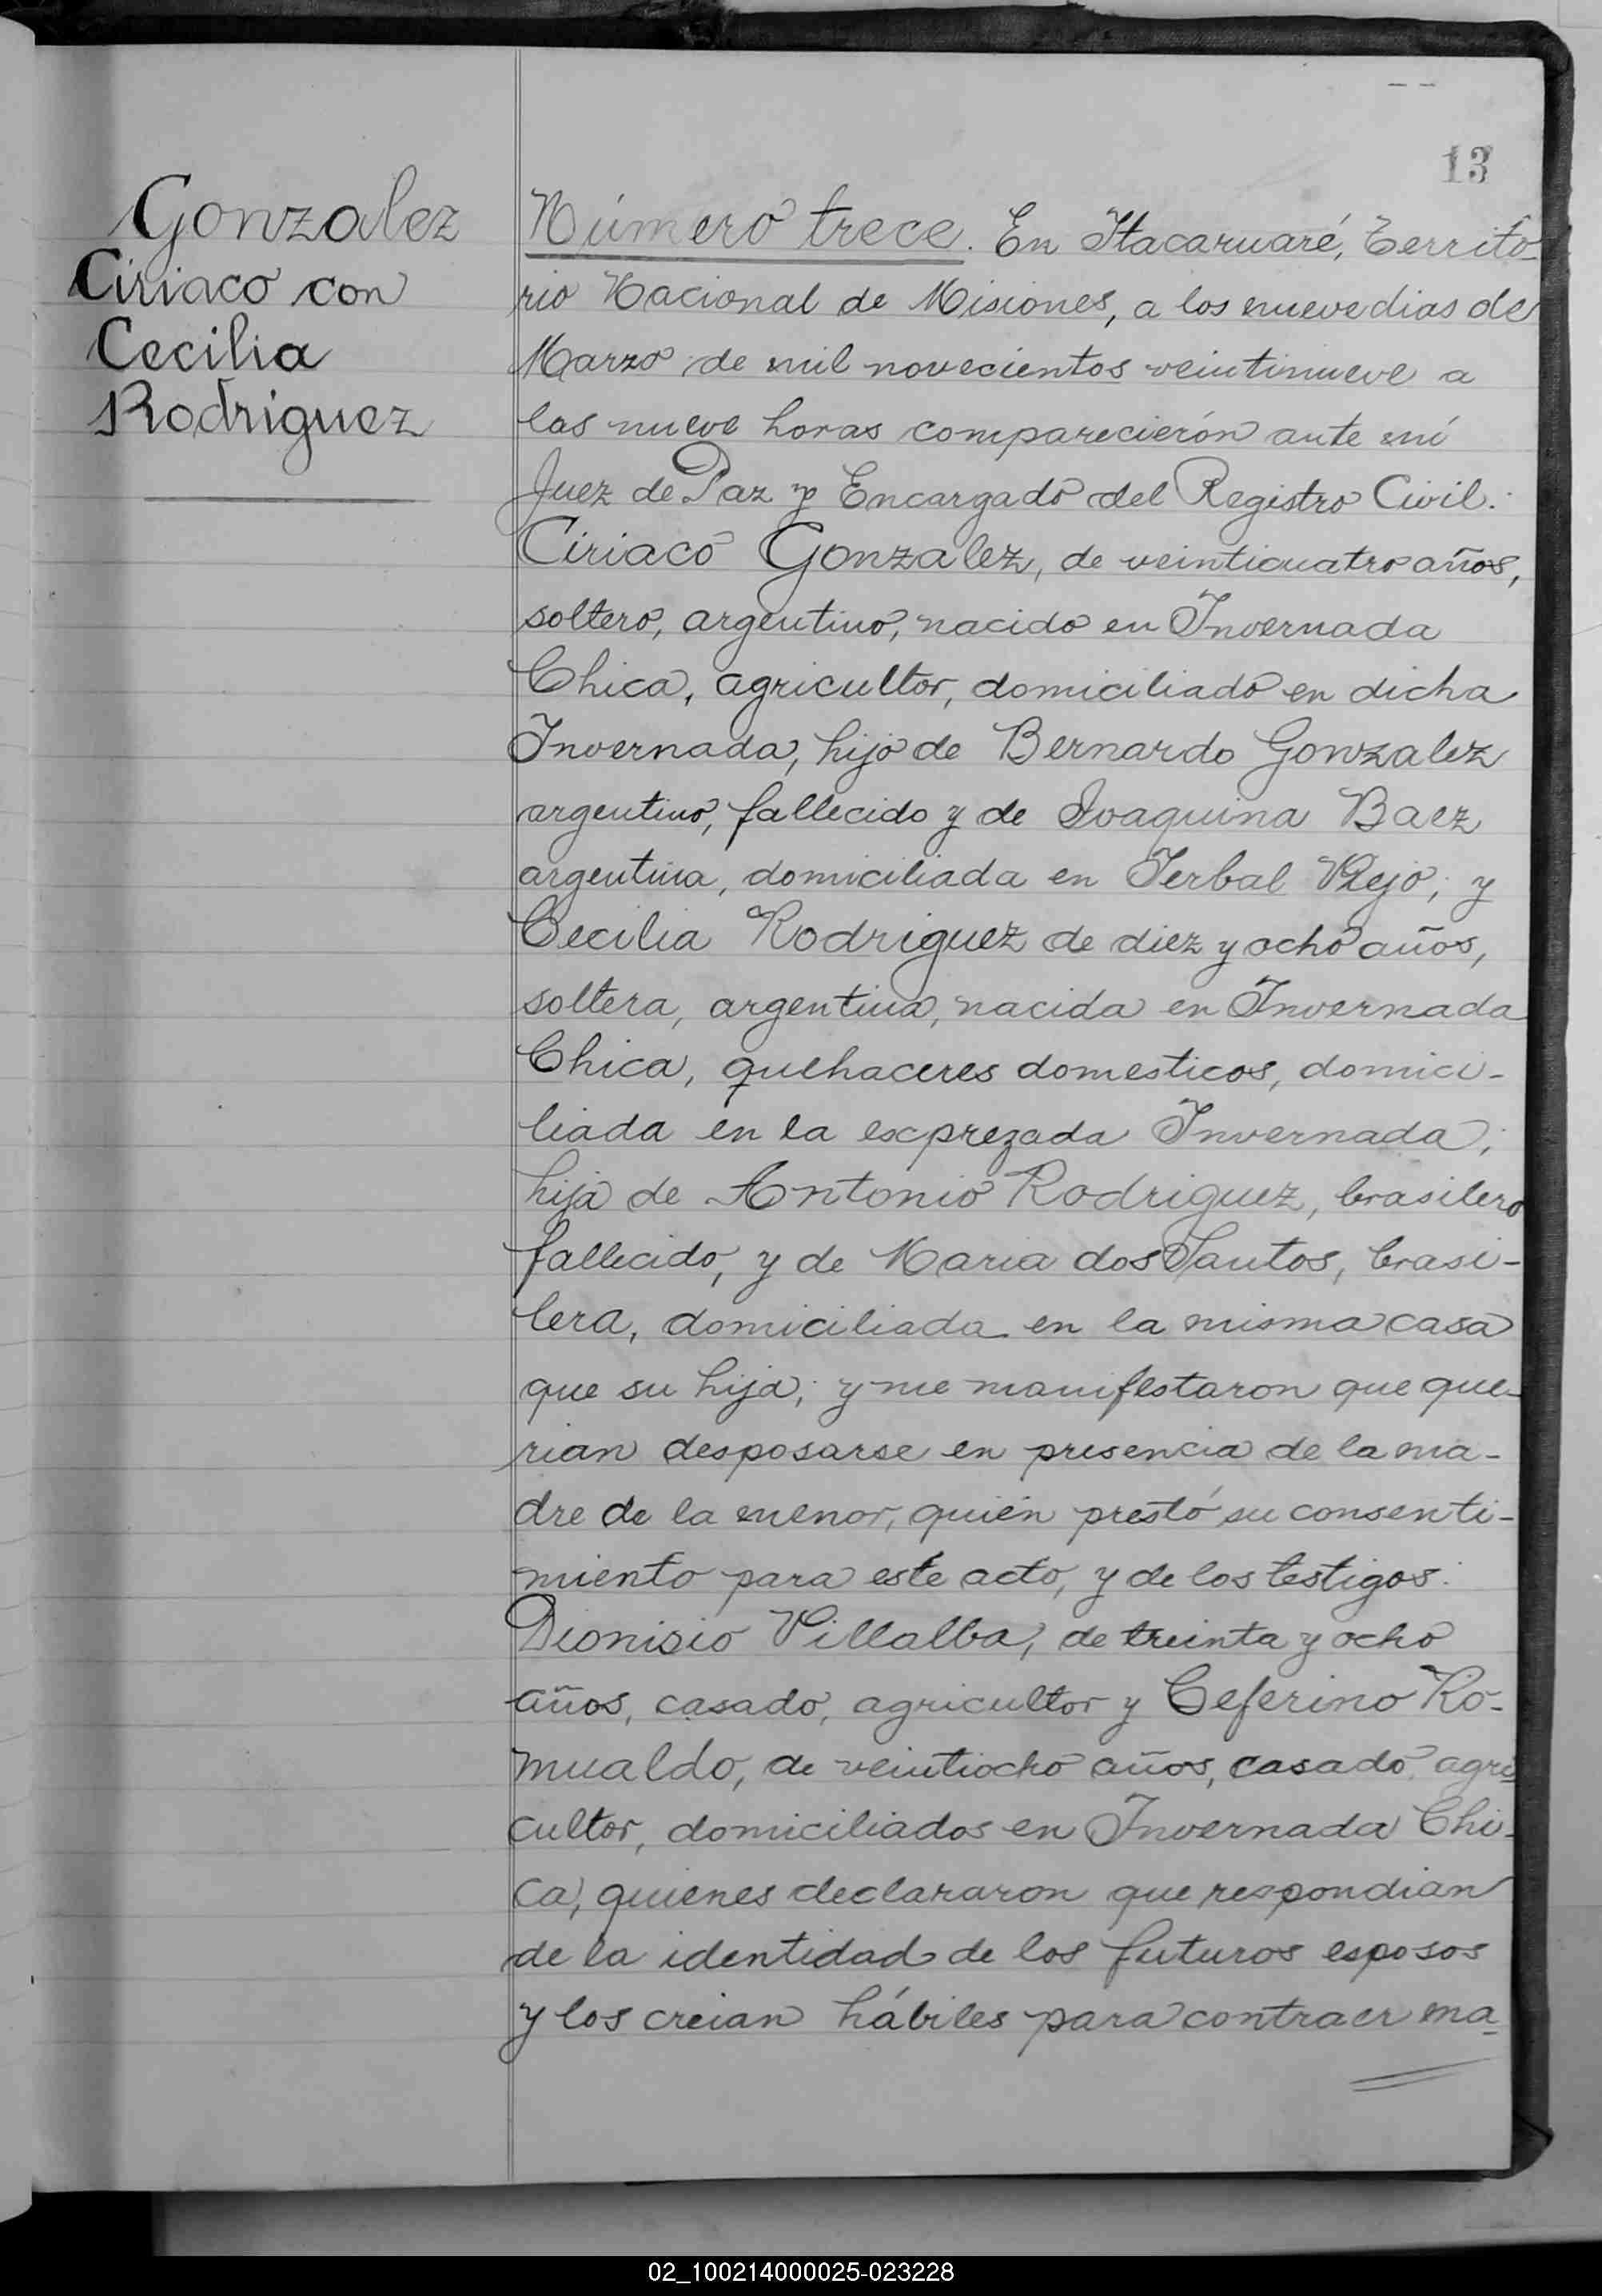 13
Gonzalez
Ciriaco con
Cecilia
Rodriguez
Número trece. En Itacaruaré, Territo-
rio Nacional de Misiones, a los nueve dias de
Marzo de mil novecientos veintinueve a
las nueve horas comparecierón ante mí
Juez de Paz y Encargado del Registro Civil:
Ciriaco Gonzalez, de veinticuatro años,
soltero, argentino, nacido en Invernada
Chica, agricultor, domiciliado en dicha
Invernada, hijo de Bernardo Gonzalez
argentino, fallecido y de Joaquina Baez
argentina, domiciliada en Yerbal Viejo; y
Cecilia Rodriguez de diez y ocho años,
soltera, argentina, nacida en Invernada
Chica, quehaceres domesticos, domici-
liada en la exprezada Invernada;
hija de Antonio Rodriguez, brasilero
fallecido, y de Maria dos Santos, brasi-
lera, domiciliada en la misma casa
que su hija; y me manifestaron que que-
rian desposarse en presencia de la ma-
dre de la menor, quién prestó su consenti-
miento para este acto, y de los testigos:
Dionisio Villalba, de treinta y ocho
años, casado, agricultor y Ceferino Ro-
mualdo, de veintiocho años, casado, agri
cultor, domiciliados en Invernada Chi-
ca, quienes declararon que respondian
de la identidad de los futuros esposos
y los creian hábiles para contraer ma-
02_100214000025-023228